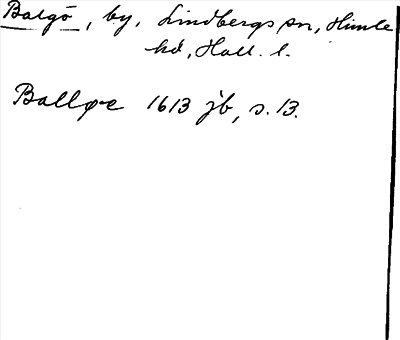 Balgö, by, Lindbergs sn, Himle
hd, Hall. l.
Balløe 1613 jb, s. 13.